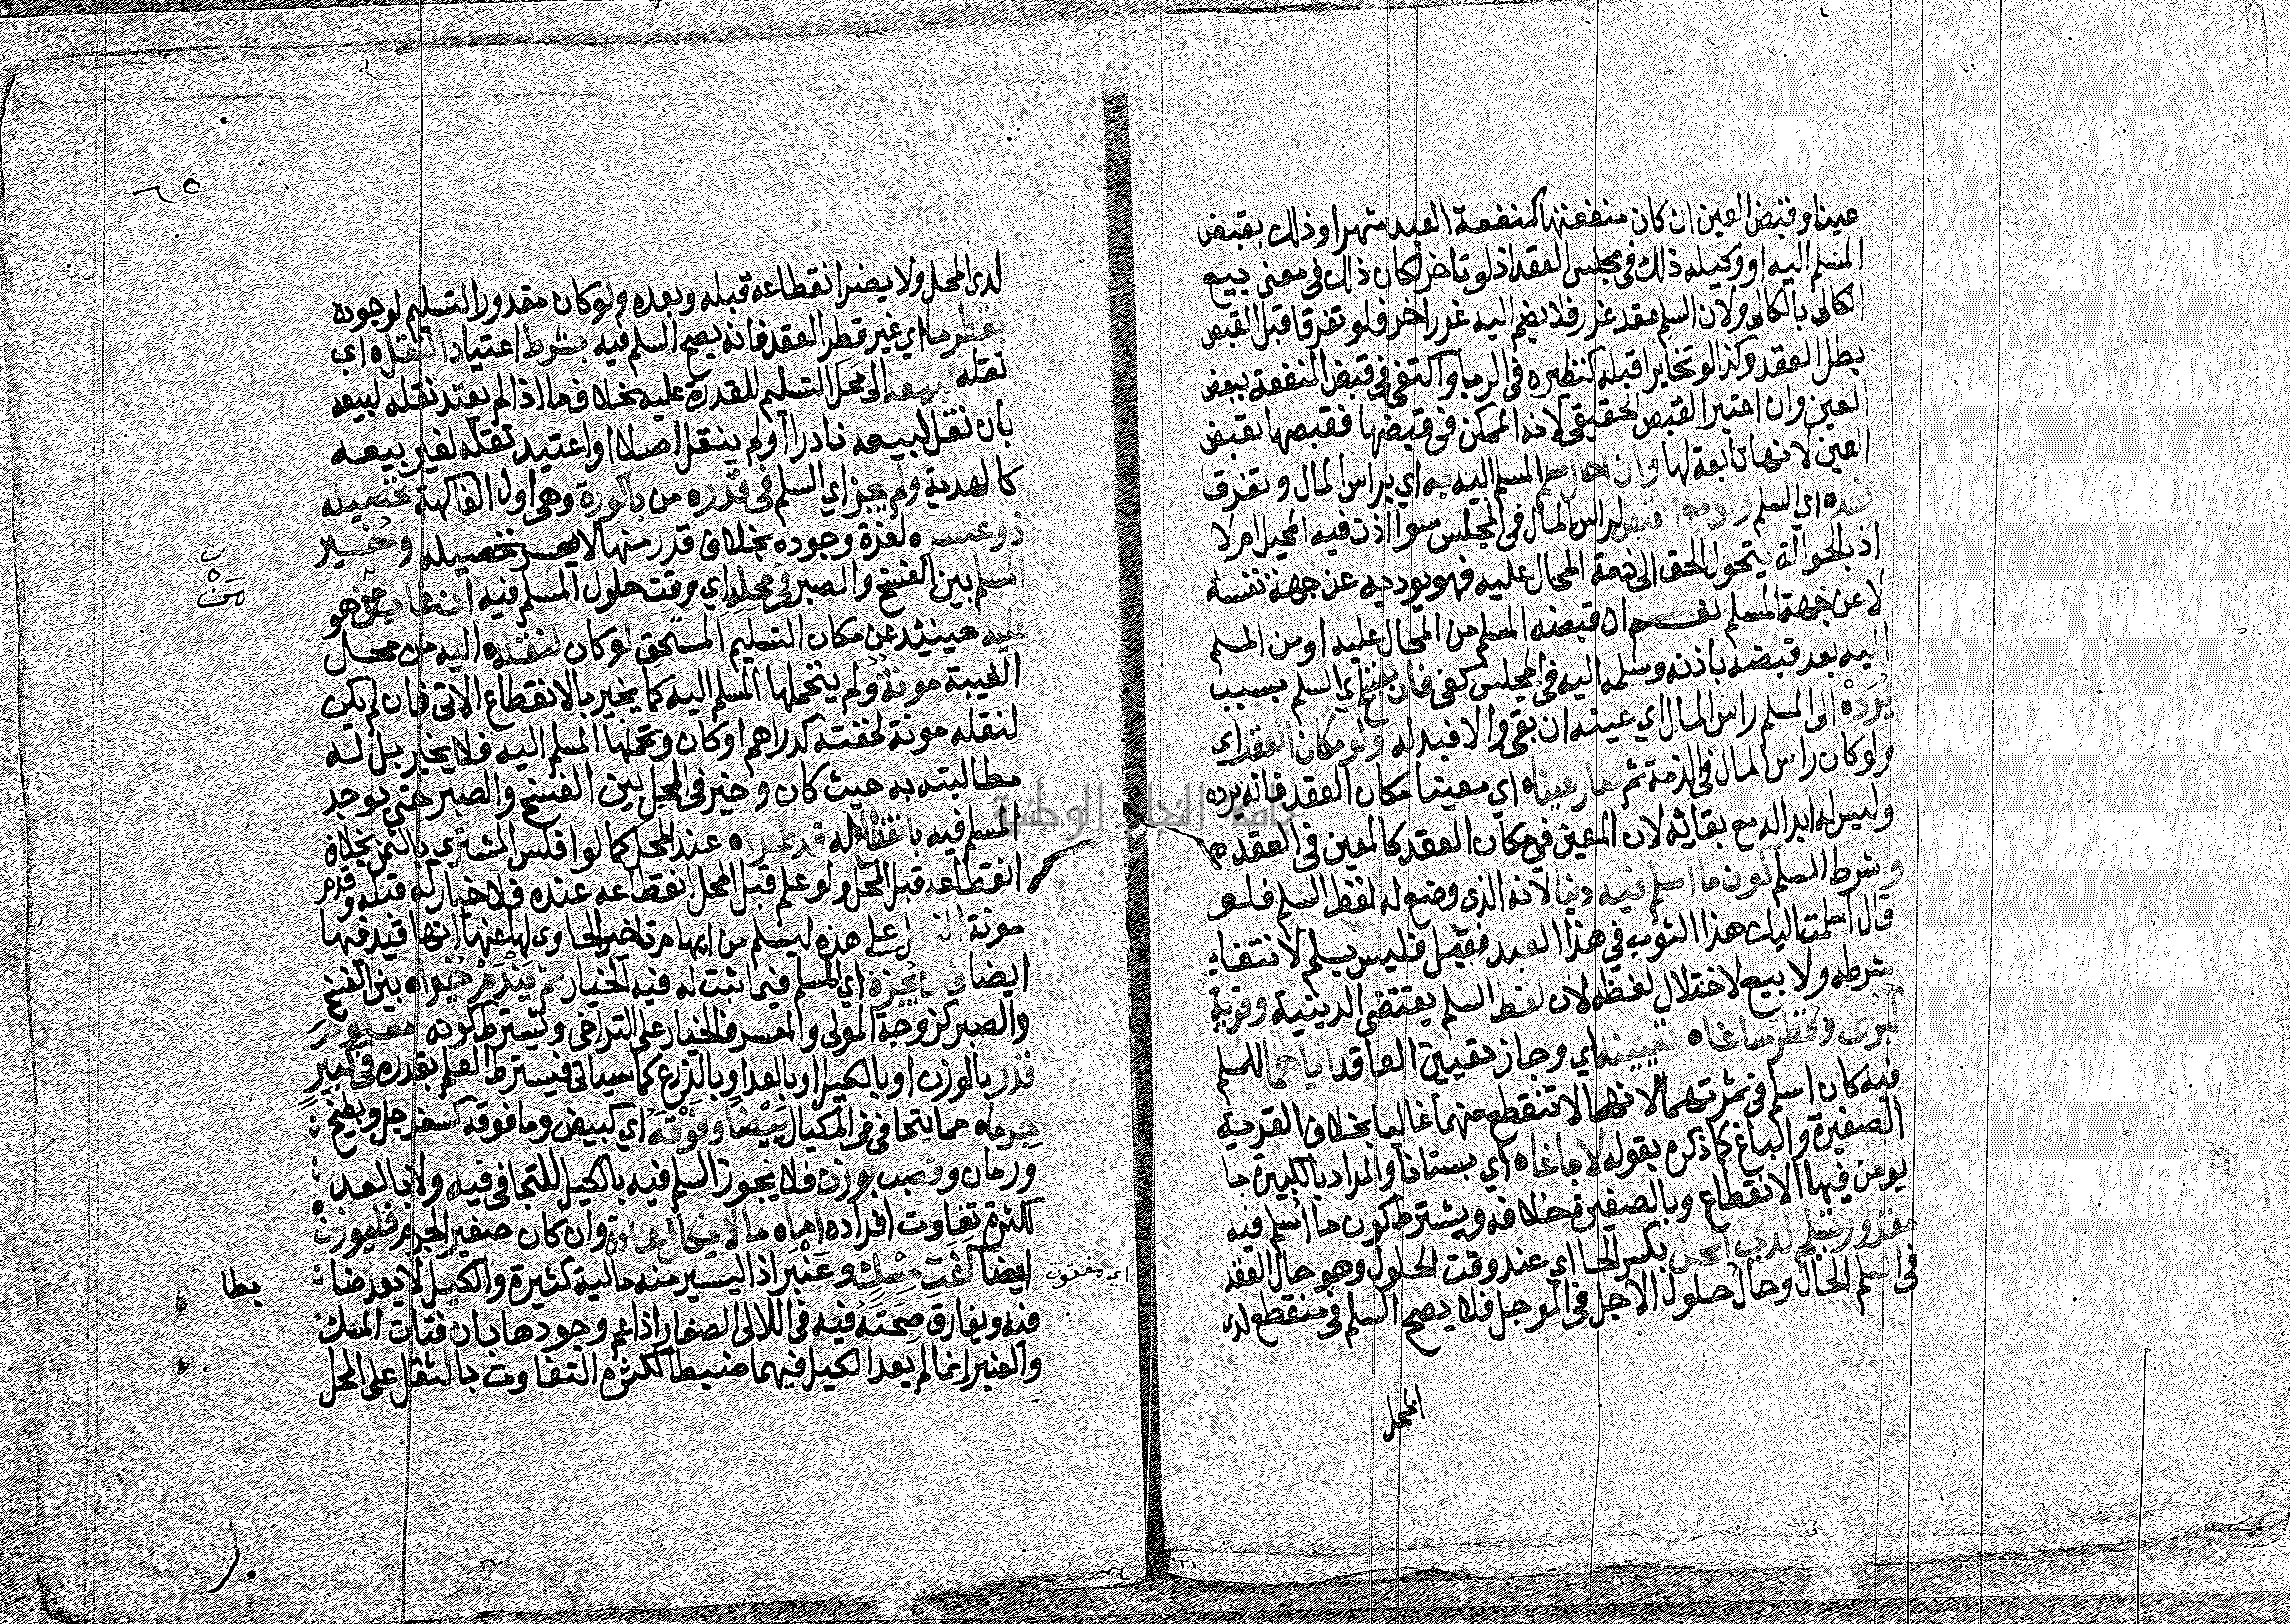 عينا وقبض العين ان كان منفعتها كمنفعة العبد شهرا وذلك بقبض
المسلم اليه او وكيله ذلك في مجلس العقد اذ لو تاخر لكان ذلك في معنى بيع
الكالي بالكالي ولان السلم عقد غرر فلا يضم اليه غرر اخر فلو تفرقا قبل القبض
بطل العقد وكذا لو تخايرا قبله كنظيره في الربا واكتفي في قبض المنفعة بقبض
العين وان اعتبر القبض الحقيقي لانه الممكن في قبضها فقبضها بقبض
العين لانها تابعة لها وان احال مسلم المسلم اليه به اي براس المال وتفرقا
فسده اي السلم ولو مع قبض لراس المال في المجلس سوا اذن فيه المحيل ام لا
اذ بالحوالة يتحول الحق الى ذمة المحال عليه فهو يوديه عن جهة نفسه
لا عن جهة المسلم نعم ان قبضه المسلم من المحال عليه او من المسلم
اليه بعد قبضه باذنه وسلمه اليه في المجلس كفى فان فسخ اي السلم بسبب
يرده الى المسلم راس المال اي عينه ان بقي والا فبدله ولو مكان العقد اي
ولو كان راس المال في الذمة ثم صار عيناه اي معينا مكان العقد فانه يرده
وليس له ابداله مع بقائه لان المعين في مكان العقد كالمعين في العقد
وشرط السلم كون ما اسلم فيه دينا لانه الذي وضع له لفظ السلم فلو
قال اسلمت اليك هذا الثوب في هذا العبد فقبل فليس بسلم لانتفاء
شرطه ولا بيع لاختلال لفظه لان لفظ السلم يقتضي الدينية وقرية
كبرى وقطر ساغاه تعيينه اي وجاز تعيين العاقد اياهما للمسلم
فيه كان اسلم في ثمرتهما لانهما لا تنقطع منهما غالبا بخلاف القرية
الصغيرة والباغ كما ذكره بقوله لا باغاه اي بستانا والمراد بالكبيرة ما
يومن فيها الانقطاع وبالصغيرة خلافه ويشترط كون ما اسلم فيه
مقدور تسلم لدي المحل بكسر الحا اي عند وقت الحلول وهو حال العقد
في السلم الحال وحال حلول الاجل في الموجل فلا يصح السلم في منقطع لدى
المحل
٦٥
لدى المحل ولا يضر انقطاعه قبله وبعده ولو كان مقدور التسليم لوجوده
بقطر ما اي غير قطر العقد فانه يصح السلم فيه بشرط اعتياد النقل ه اي
نقله لبيعه الى محل التسليم للقدرة عليه بخلاف ما اذا لم يعتد نقله لبيعه
بان نقل لبيعه نادرا او لم ينقل اصلا او اعتيد نقله لغير بيعه
كالهدية ولم يجز اي السلم في قدره من باكورة وهي اول الفاكهة تحصيله
ذو عسره لعزة وجوده بخلاف قدر منها لا يعسر تحصيله وخير
المسلم بين الفسخ والصبر في محله اي وقت حلول المسلم فيه ان غاب من هو
عليه حينئذ عن مكان التسليم المستحق لو كان لنقله اليه من محل
الغيبة مونة ولم يتحملها المسلم اليه كما يخير بالانقطاع الاتي فان لم يكن
لنقله مونة لخفته كدراهم او كان وتحملها المسلم اليه فلا يخير بل له
مطالبته به حيث كان وخير في المحل بين الفسخ والصبر حتى يوجد
المسلم فيه بانقطاع له قد طراه عند المحل كما لو افلس المشتري بالثمن بخلاف
انقطاعه قبل المحل ولو علم قبل المحل انقطاعه عنده فلا خيار له قبله وقدم
مونة النقل على هذه ليسلم من ايهام تاخير الحاوي لها عنها انها قيد فيها
ايضا فان يجزه اي المسلم فيما اثبت له فيه الخيار ثم يندم خيراه بين الفسخ
والصبر كزوجة المولى والمعسر فالخيار على التراخي ويشترط كونه معلوم
قدر بالوزن او بالكيل او بالعد او بالذرع كما سياتي فيشترط العلم بقدره في كبير
جرماه مما يتجافى في المكيال بيضا وفوقه اي كبيض وما فوقه كسفرجل وبطيخ
ورمان وقصب بوزن فلا يجوز السلم فيه بالكيل للتجافي فيه ولا بالعد
لكثرة تفاوت افراده اماه ما لا يكال عادة وان كان صغير الجرم فليوزن
ايضا كفت مسك وعنبر اذ اليسير منه مالية كثيرة والكيل لا يعد ضبا
فيه ويفارق صحته فيه في اللالي الصغار اذا عم وجودها بان فتات المسك
والعنبر انما لم يعد الكيل فيهما ضبطا لكثرة التفاوت بالثقل على المحل
من
اي مفتوت
بطا
جامعة النجاح الوطنية